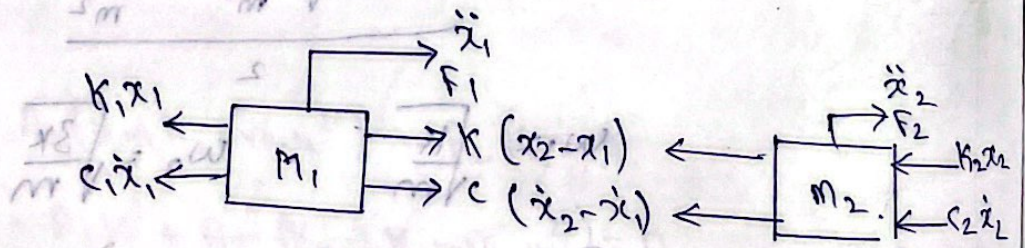 ẍ₁
F₁
K₁x₁
C₁ẋ₁
M₁
K (x₂-x₁)
C (ẋ₂-ẋ₁)
ẍ₂
F₂
M₂.
K₂x₂
C₂ẋ₂